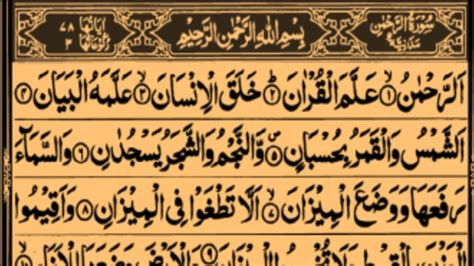 سُوْرَةُ الرَّحْمٰنِ مَدَنِيَّةٌ بِسْمِ اللهِ الرَّحْمٰنِ الرَّحِيْمِ اٰيَاتُهَا ٧٨ رُكُوْعَاتُهَا ٣
اَلرَّحْمٰنُ ۝١ عَلَّمَ الْقُرْاٰنَ ۝٢ خَلَقَ الْاِنْسَانَ ۝٣ عَلَّمَهُ الْبَيَانَ ۝٤
اَلشَّمْسُ وَالْقَمَرُ بِحُسْبَانٍ ۝٥ وَّالنَّجْمُ وَالشَّجَرُ يَسْجُدٰنِ ۝٦ وَالسَّمَآءَ
رَفَعَهَا وَوَضَعَ الْمِيْزَانَ ۝٧ اَلَّا تَطْغَوْا فِى الْمِيْزَانِ ۝٨ وَاَقِيْمُوا